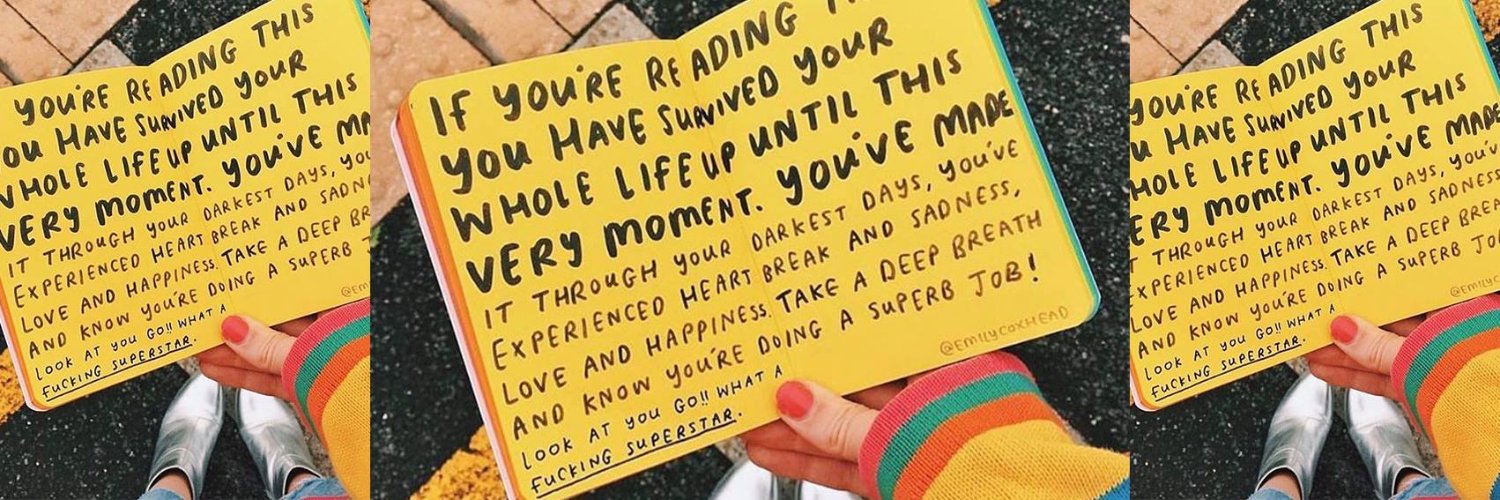 YOU'RE READING THIS
OU HAVE SURVIVED YOUR
WHOLE LIFE UP UNTIL THIS
VERY MOMENT. YOU'VE MA
IT THROUGH YOUR DARKEST DAYS, YOU
EXPERIENCED HEART BREAK AND SADN
LOVE AND HAPPINESS. TAKE A DEEP BR
AND KNOW YOU'RE DOING A SUPERB
@EM
LOOK AT YOU GO!! WHAT A
FUCKING SUPERSTAR.
IF YOU'RE READING
YOU HAVE SURVIVED YOUR
WHOLE LIFE UP UNTIL THIS
VERY MOMENT. YOU'VE MADE
IT THROUGH YOUR DARKEST DAYS, YOU'VE
EXPERIENCED HEART BREAK AND SADNESS,
LOVE AND HAPPINESS. TAKE A DEEP BREATH
AND KNOW YOU'RE DOING A SUPERB JOB!
@EMILYCOXHEAD
LOOK AT YOU GO!! WHAT A
FUCKING SUPERSTAR.
YOU'RE READING THIS
U HAVE SURVIVED YOUR
HOLE LIFE UP UNTIL THIS
ERY MOMENT. YOU'VE MADE
T THROUGH YOUR DARKEST DAYS, YOU'V
EXPERIENCED HEART BREAK AND SADNESS
LOVE AND HAPPINESS. TAKE A DEEP BREA
AND KNOW YOU'RE DOING A SUPERB JO
@EMILYCO
LOOK AT YOU GO!! WHAT A
FUCKING SUPERSTAR.